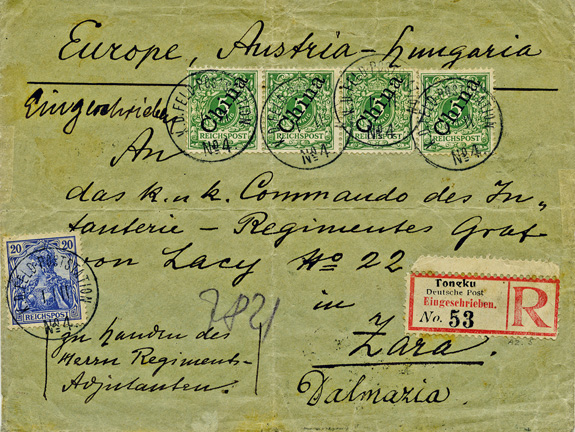 Europe, Austria-Hungaria
Eingeschrieben
China China China China
REICHSPOST REICHSPOST REICHSPOST REICHSPOST
K.D. FELD-POSTSTATION
No 4
No 4
No 4
No 4
An
das k. u. k. Commando des In-
fanterie - Regimentes Graf
von Lacy No 22
in
Zara.
Dalmazia.
20 20
REICHSPOST
K.D. FELD-POSTSTATION
No 4
7821
zu handen des
Herrn Regiments-
Adjutanten.
Tongku
Deutsche Post
Eingeschrieben.
No. 53
R